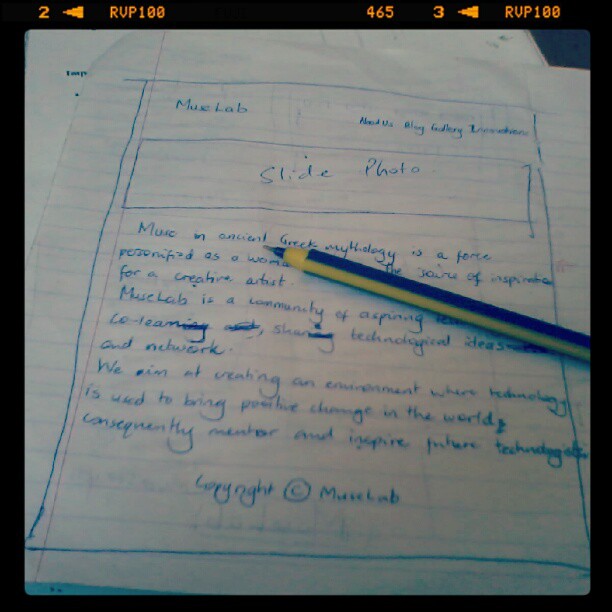 2 RVP100 465 3 RVP100
MuseLab
About Us Blog Gallery Innovations
Slide Photo
Muse in ancient Greek mythology is a force
personified as a the source of inspiration
for a creative artist.
MuseLab is a community of aspiring
co-learning and, sharing technological ideas
and network.
We aim at creating an environment where technology
is used to bring positive change in the world,
consequently mentor and inspire future technologists
Copyright © MuseLab